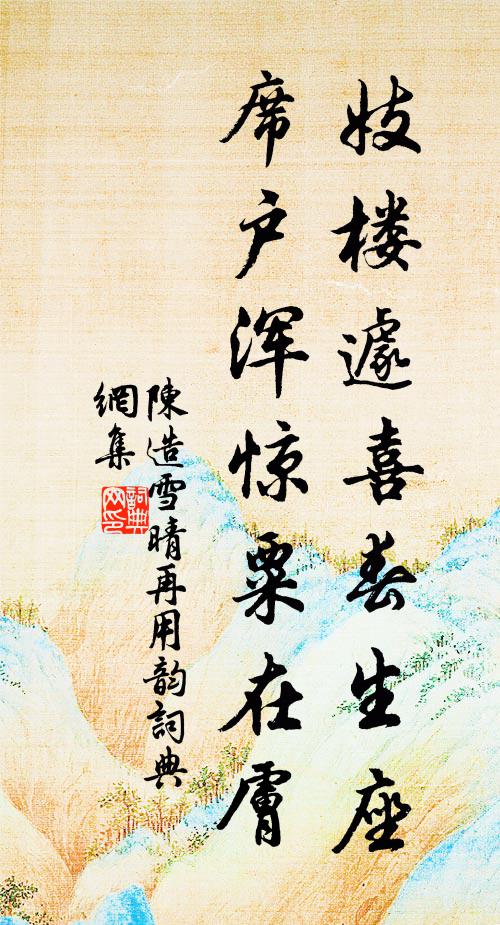 妓楼遽喜春生座
席户浑惊粟在膚
陳造雪晴再用韵詞典
網集
詞典
网印